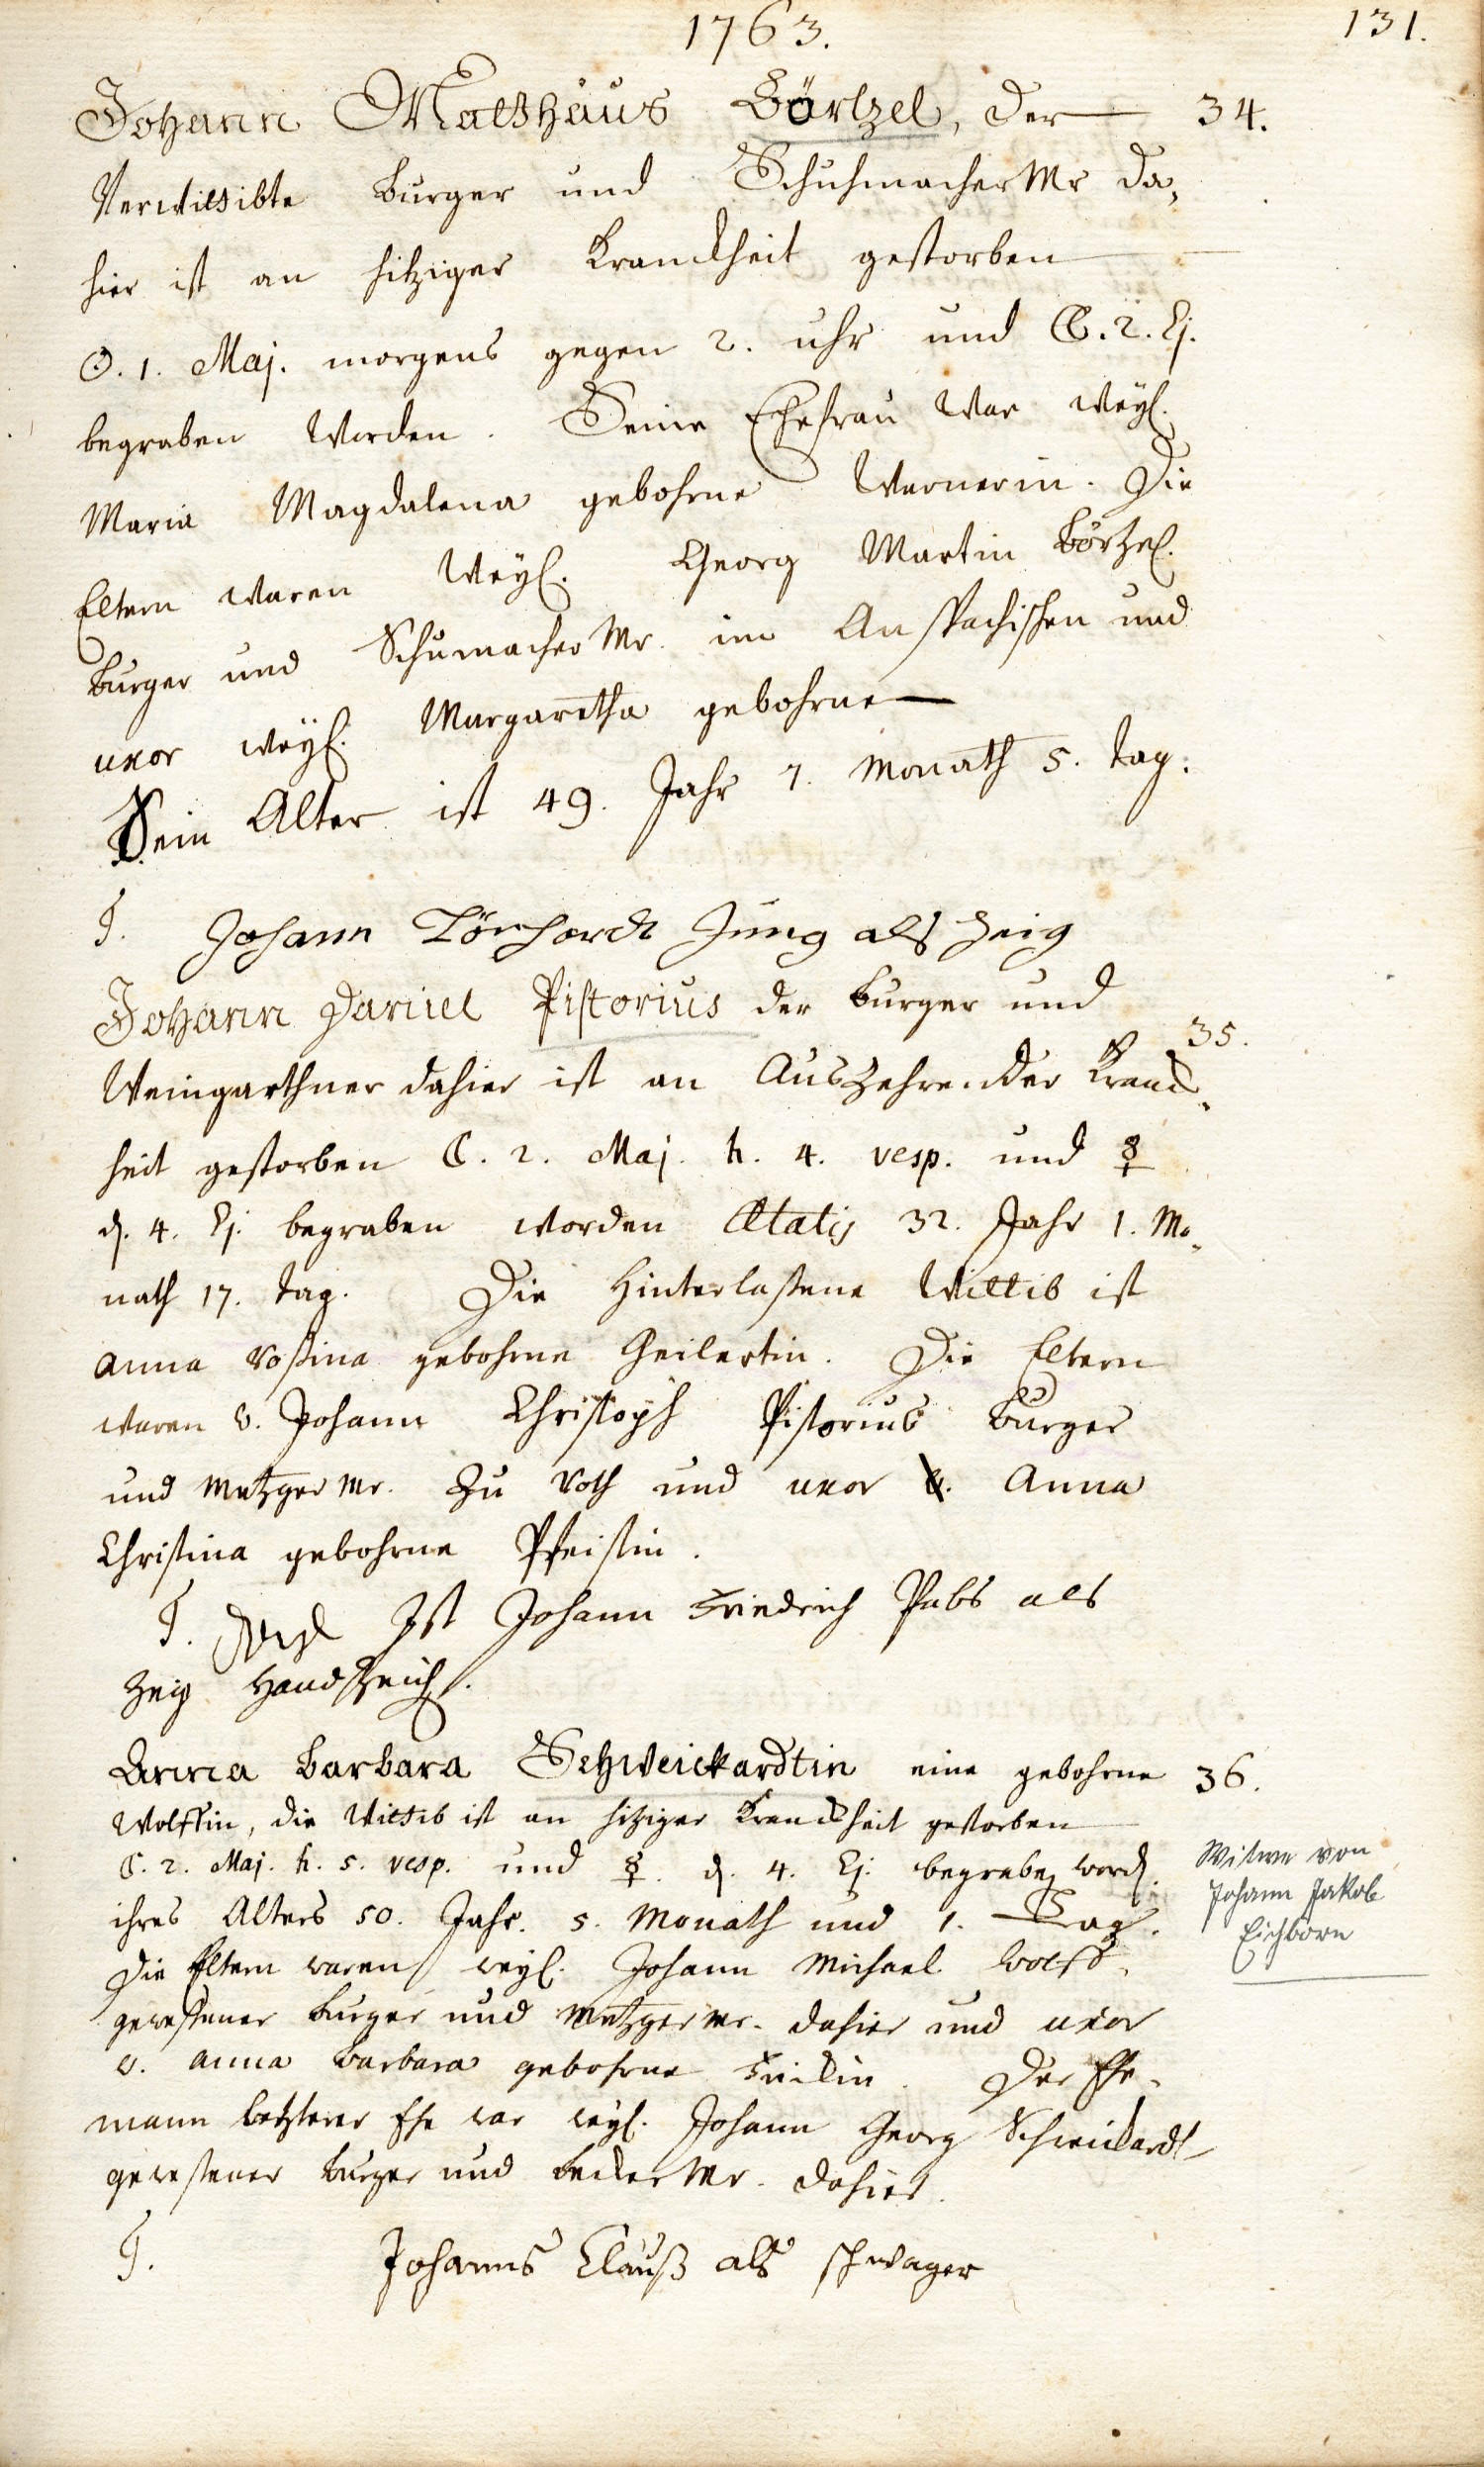 1763.
131.
Johann Matthäus Börtzel, der — 34.
Verwittibte Burger und Schuhmacher Mr da,
hier ist an hitziger Kranckheit gestorben
☉. 1. Maj. morgens gegen 2. uhr und ☾. 2. Ej.
begraben worden. Seine Ehefrau war weyl.
Maria Magdalena gebohrne Wernerin. Die
Eltern waren weyl. Georg Martin Börzel.
Burger und Schumacher Mr. im Anspachischen und
uxor weyl. Margaretha gebohrne —
Sein Alter ist 49. Jahr 7. Monath 5. tag.
T. Johann Jung als Zeig
Johann Daniel Pistorius der Burger und
35.
Weingarthner dahier ist an Auszehrender Kranck,
heit gestorben ☾. 2. Maj. h. 4. vesp. und ☿
d. 4. Ej. begraben worden Ætatis 32. Jahr 1. Mo,
nath 17. tag. Die Hinterlaßene Wittib ist
Anna Rosina gebohrne Geilertin. Die Eltern
waren v. Johann Christoph Pistorius Burger
und Metzger Mr. zu Roth und uxor Anna
Christina gebohrne
T. Ist Johann Friedrich Pabs als
Zeig Handzeich.
Anna Barbara Schweickardtin eine gebohrne 36.
Wolffin, die Wittib ist an hitziger Kranckheit gestorben
☾. 2. Maj. h. 5. vesp. und ☿. d. 4. Ej. begraben word.
ihres Alters 50. Jahr. 5. Monath und 1. Tag.
Die Eltern waren weyl. Johann Michael Wolff
geweßener Burger und Metzger Mr. dahier und uxor
v. Anna Barbara gebohrne Der Ehe,
mann letzterer Ehe war weyl. Johann Georg Schweickardt
geweßener Burger und Becker Mr. dahier.
T. Johannes Clauß als schwager
Witwe von
Johann Jakob
Eichborn